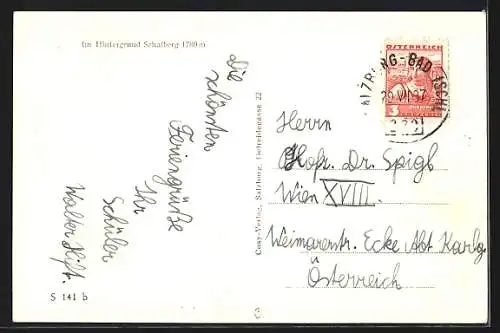 Im Hintergrund Schafberg 1780 m
Die
schönsten
Feriengrüße
Ihr
Schüler
Walter Hift.
S 141 b
Cosy-Verlag, Salzburg, Getreidegasse 22
ÖSTERREICH
3
GROSCHEN
ALZBURG - BAD ISCHL
29 VII 37
Herrn
Hofr. Dr. Spigl
Wien XVIII.
Weimarerstr. Ecke Abt Karlg.
Österreich